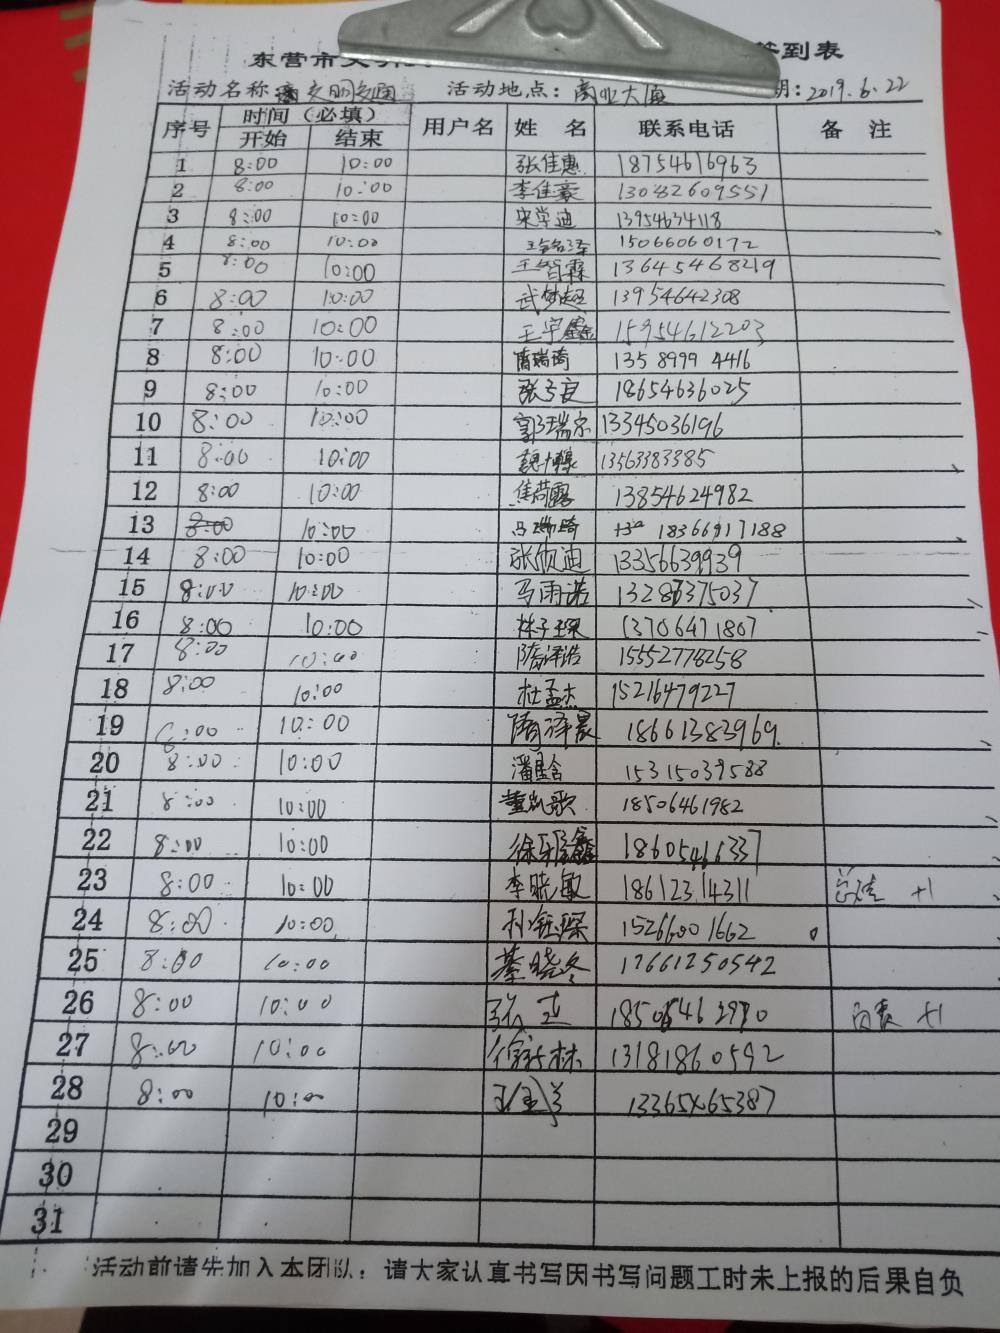 东营市 签到表
活动名称: 文明交通 活动地点: 商业大厦 期: 2019.6.22
序号 时间（必填） 用户名 姓 名 联系电话 备 注
开始 结束
1 8:00 10:00 张佳惠 18754616963
2 8:00 10:00 李佳豪 13082609551
3 8:00 10:00 宋学迪 13954634118
4 8:00 10:00 王铭泽 15066060172
5 8:00 10:00 王智霖 13645468219
6 8:00 10:00 武梦超 13954642308
7 8:00 10:00 王宇鑫 15954612203
8 8:00 10:00 隋瑞琦 135 8999 4416
9 8:00 10:00 18654636025
10 8:00 10:00 郭瑞宗 13345036196
11 8:00 10:00 13563383385
12 8:00 10:00 焦荷露 13854624982
13 8:00 10:00 马瑞琦 18366917188
14 8:00 10:00 张欣迪 13356639939
15 8:00 10:00 马雨诺 13286375037
16 8:00 10:00 林子琛 13706471807
17 8:00 10:00 隋泽浩 15552778258
18 8:00 10:00 杜孟杰 15216479227
19 8:00 10:00 隋泽晨 18661383969
20 8:00 10:00 潘星含 15315039588
21 8:00 10:00 董凯歌 18506461982
22 8:00 10:00 18605466337
23 8:00 10:00 李晓敏 18612314311 +1
24 8:00 10:00 孙钰琛 15266001662
25 8:00 10:00 綦晓冬 17661250542
26 8:00 10:00 张 18506462970 +1
27 8:00 10:00 徐新林 13181860592
28 8:00 10:00 65387
29
30
31
活动前请先加入本团队，请大家认真书写因书写问题工时未上报的后果自负